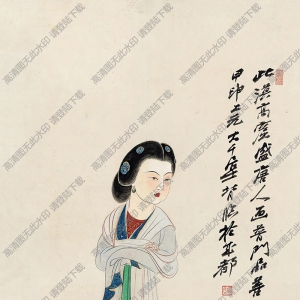 此漠高窟盛唐人画普門品善
甲申上元大千居士背临於成都
高清图无此水印 请登陆下载
高清图无此水印 请登陆下载
高清图无此水印 请登陆下载
高清图无此水印 请登陆下载